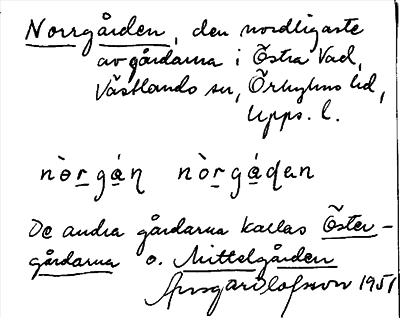 Norrgården, den nordligaste
av gårdarna i Östra Vad,
Västlands sn, Örbyhus hd,
Upps. l.
nòr̲gá̲ṇ nòr̲gá̲dan
De andra gårdarna kallas Öster-
gårdarna o. Mittelgården
1951